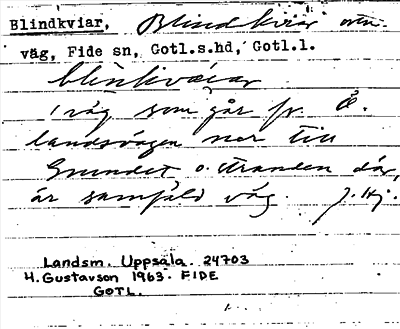 Blindkviar, Blindkviar
väg, Fide sn, Gotl.s.hd, Gotl.l.
1 väg som går fr. Ö.
landsvägen ner till
Grundet o. stranden där,
är samfäld väg. J. Hj.
Landsm. Uppsala. 24703
H. Gustavson 1963. FIDE
GOTL.